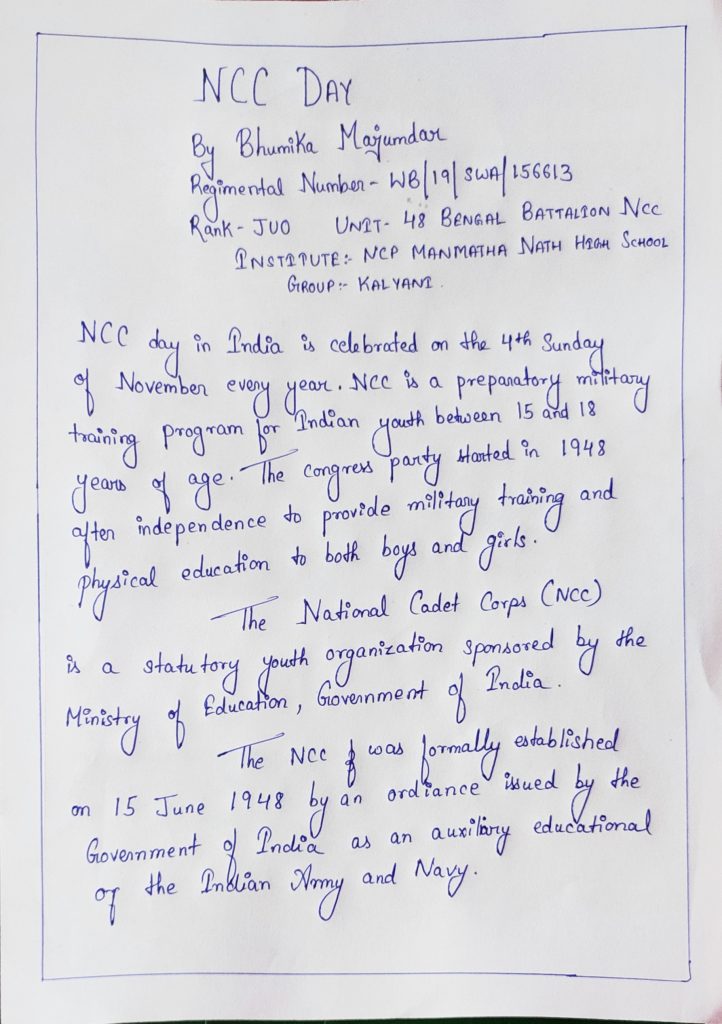 NCC DAY
By Bhumika Majumdar
Regimental Number - WB/19/SWA/156613
Rank - JUO UNIT - 48 BENGAL BATTALION NCC
INSTITUTE:- NCP MANMATHA NATH HIGH SCHOOL
GROUP:- KALYANI.
NCC day in India is celebrated on the 4th Sunday
of November every year. NCC is a preparatory military
training program for Indian youth between 15 and 18
years of age. The congress party started in 1948
after independence to provide military training and
physical education to both boys and girls.
The National Cadet Corps (NCC)
is a statutory youth organization sponsored by the
Ministry of Education, Government of India.
The NCC was formally established
on 15 June 1948 by an ordiance issued by the
Government of India as an auxiliary educational
of the Indian Army and Navy.